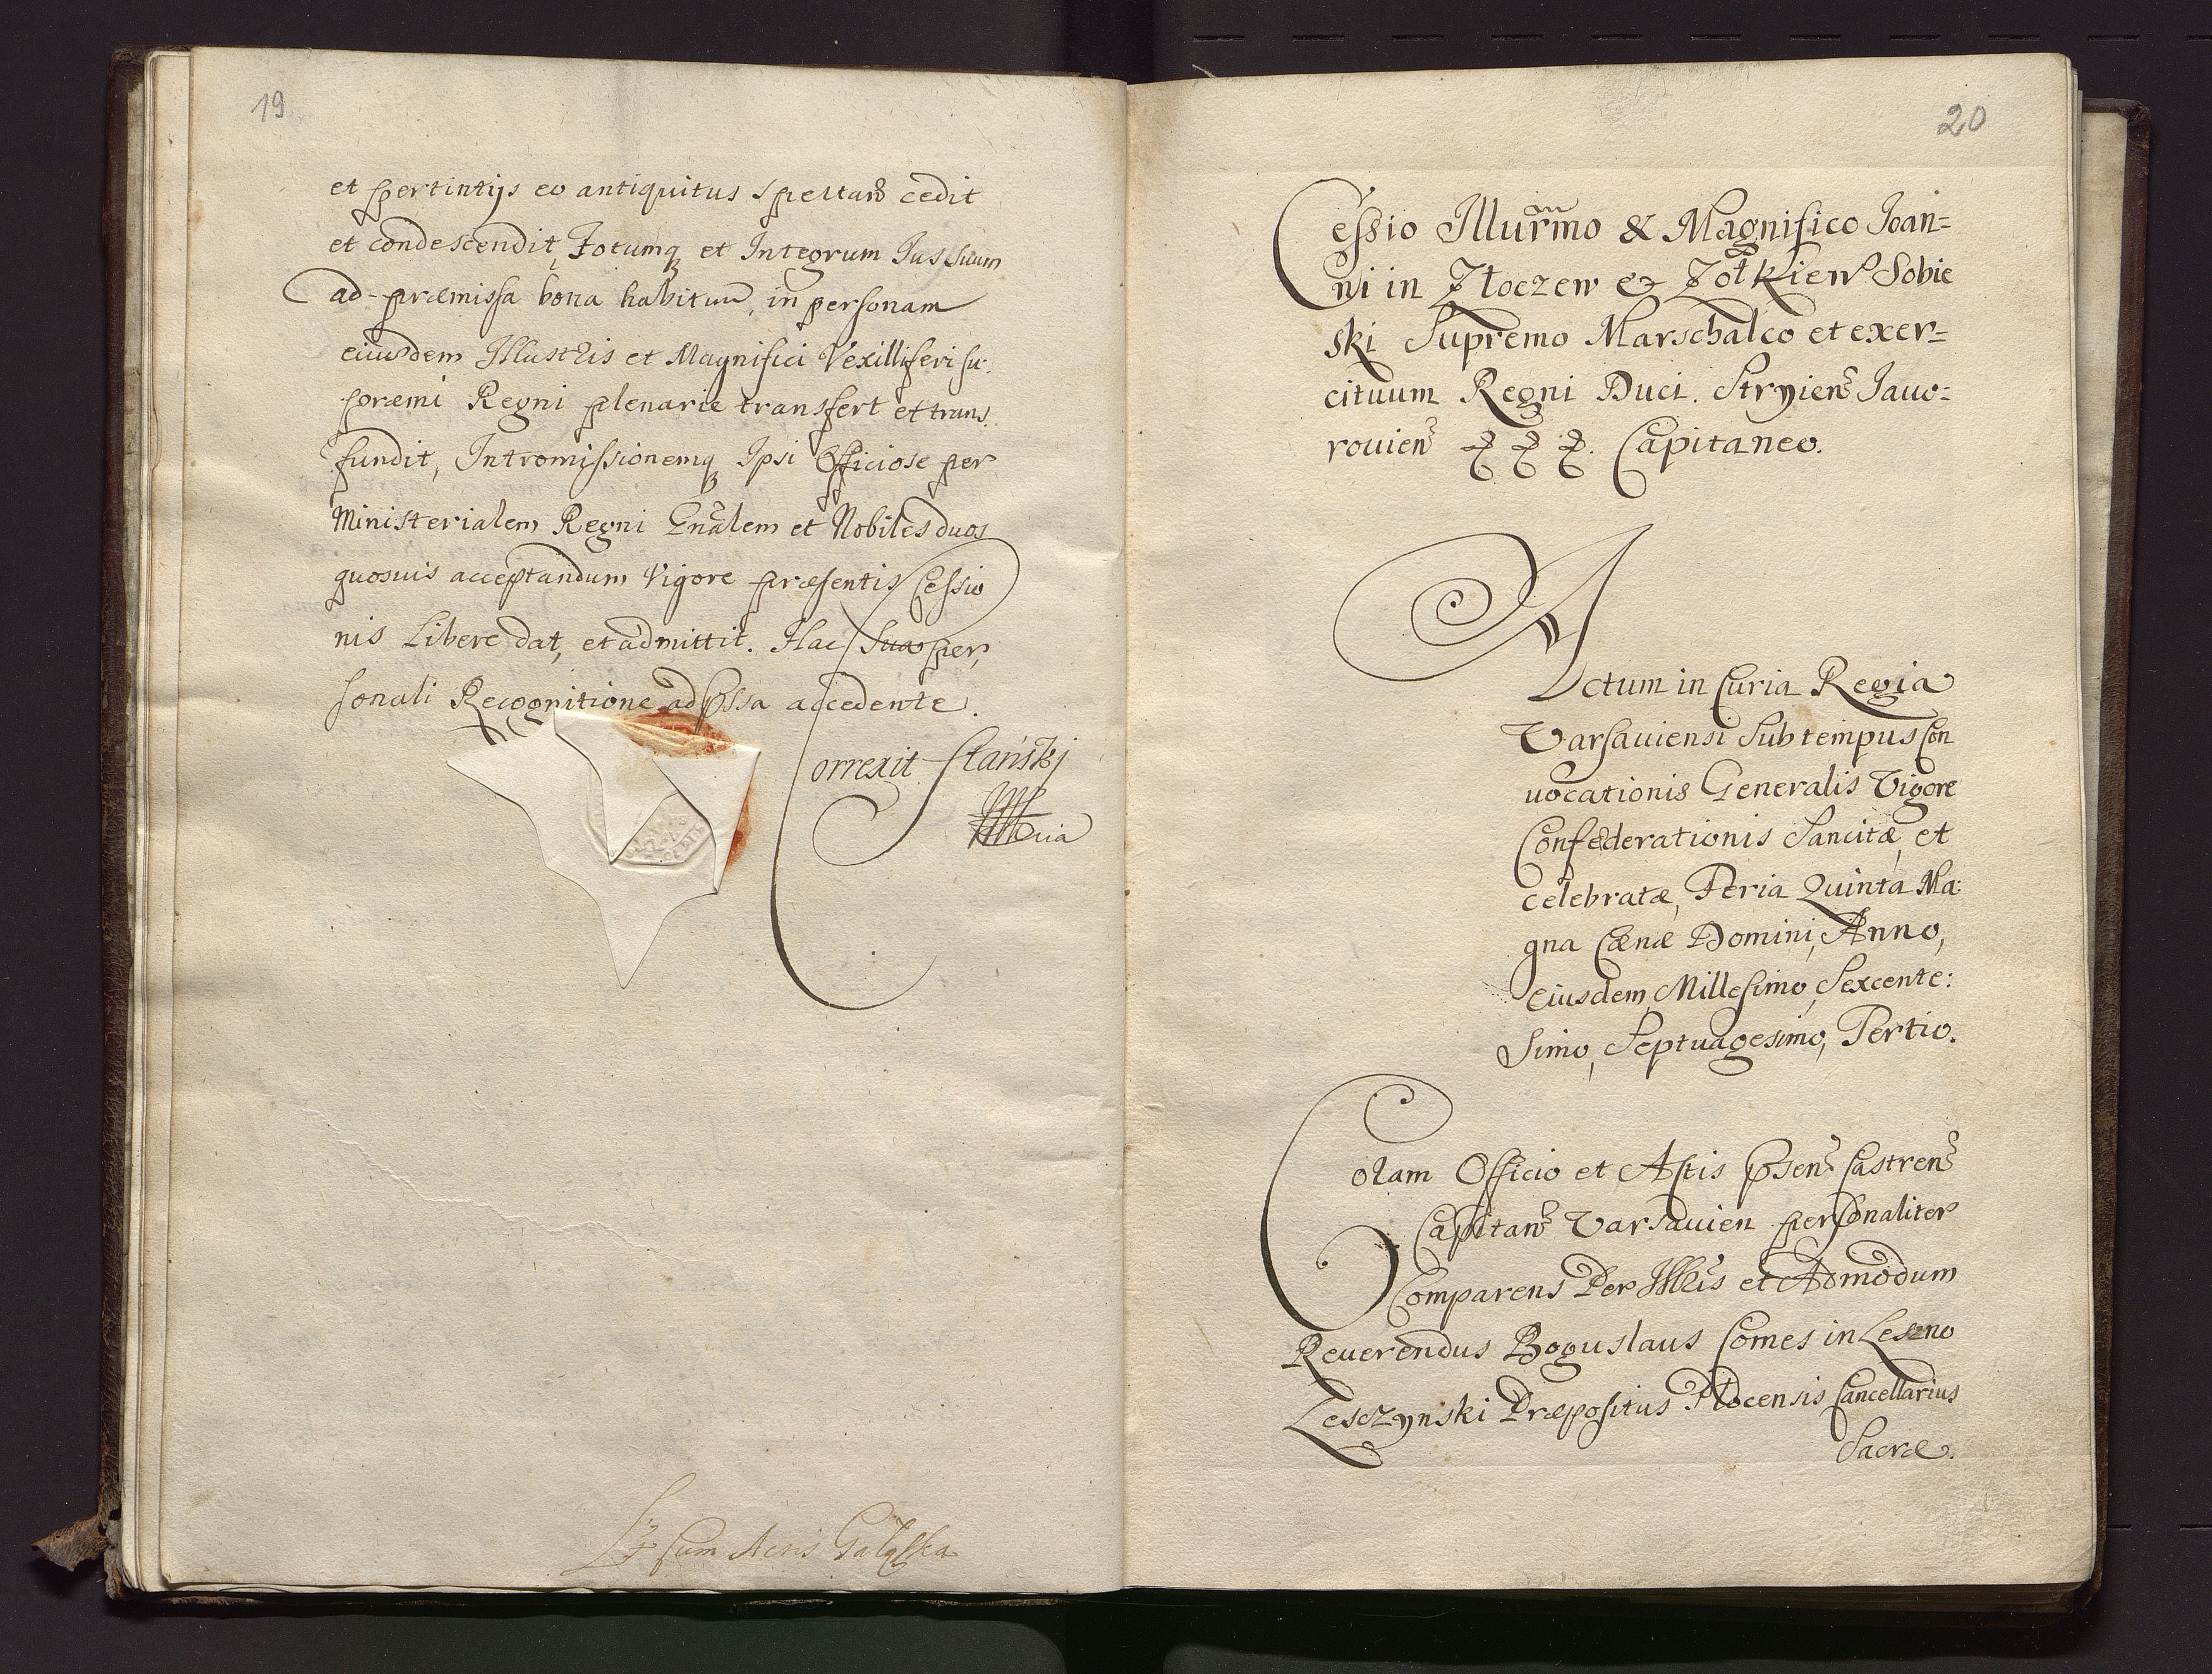 19
et pertintijs eo antiquitus spectan cedit
et condescendit, Totumq et Integrum Jus suum
ad præmissa bona habitum, in personam
eiusdem Illustris et Magnifici Vexilliferi su:
præmi Regni plenarie transfert et trans
fundit, Intromissionemq Ipsi Officiose per
Ministerialem Regni Gnalem et Nobiles duos
quosuis acceptandum Vigore præsentis Cessio
nis Libere dat, et admittit. Hac sua per
sonali Recognitione ad pssa accedente.
Correxit
Cum Actis
20
Cessio Illurmo & Magnifico Ioan=
ni in Złoczew & Żołkiew Sobie
ski Supremo Marschalco et exer=
cituum Regni Duci. Stryien Javo=
rouien & & &. Capitaneo.
Actum in Curia Regia
Varsauiensi Sub tempus Con
uocationis Generalis Vigore
Confœderationis Sancitæ, et
celebratæ, Feria Quinta Ma:
gna Cænæ Domini, Anno,
Eiusdem, Millesimo, Sexcente:
simo, Septuagesimo, Tertio.
Coram Officio et Actis psen Castren
Capitan Varsauien personaliter
Comparens Per Illris et Admodum
Reuerendus Boguslaus Comes in Leszno
Lesczynski Præpositus Płocensis Cancellarius
Sacræ.